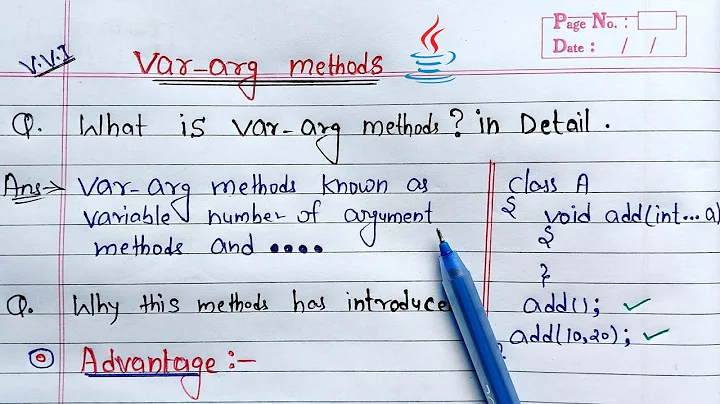 Page No. :
Date : / /
V.V.I
Var-arg methods
Q. What is var-arg methods? in Detail.
Ans→ Var-arg methods known as
variable number of argument
methods and ....
class A
{ void add(int...a)
{
}
add();
add(10,20);
Q. Why this methods has introduce
Advantage :-